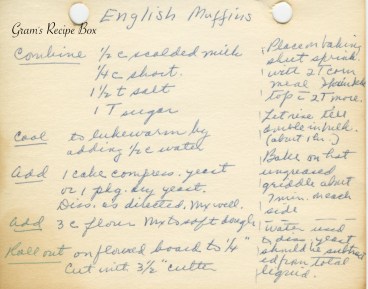 Gram's Recipe Box
English Muffins
Combine 1/2 c scalded milk
1/4 c short.
1 1/2 t salt
1 T sugar
Cool to lukewarm by
adding 1/2 c water
Add 1 cake compress. yeast
or 1 pkg. dry yeast.
Diss. as directed, Mx well.
Add 3 c flour Mx to soft dough
Roll out on floured board to 1/4"
Cut with 3 1/2" cutter
Place on baking
sheet sprink.
with 2 T corn
meal Sprinkle
top c 2 T more.
Let rise till
double in bulk.
(about 1 hr.)
Bake on hot
ungreased
griddle about
7 min. on each
side
water used
to diss. yeast
should be subtract
ed from total
liquid.